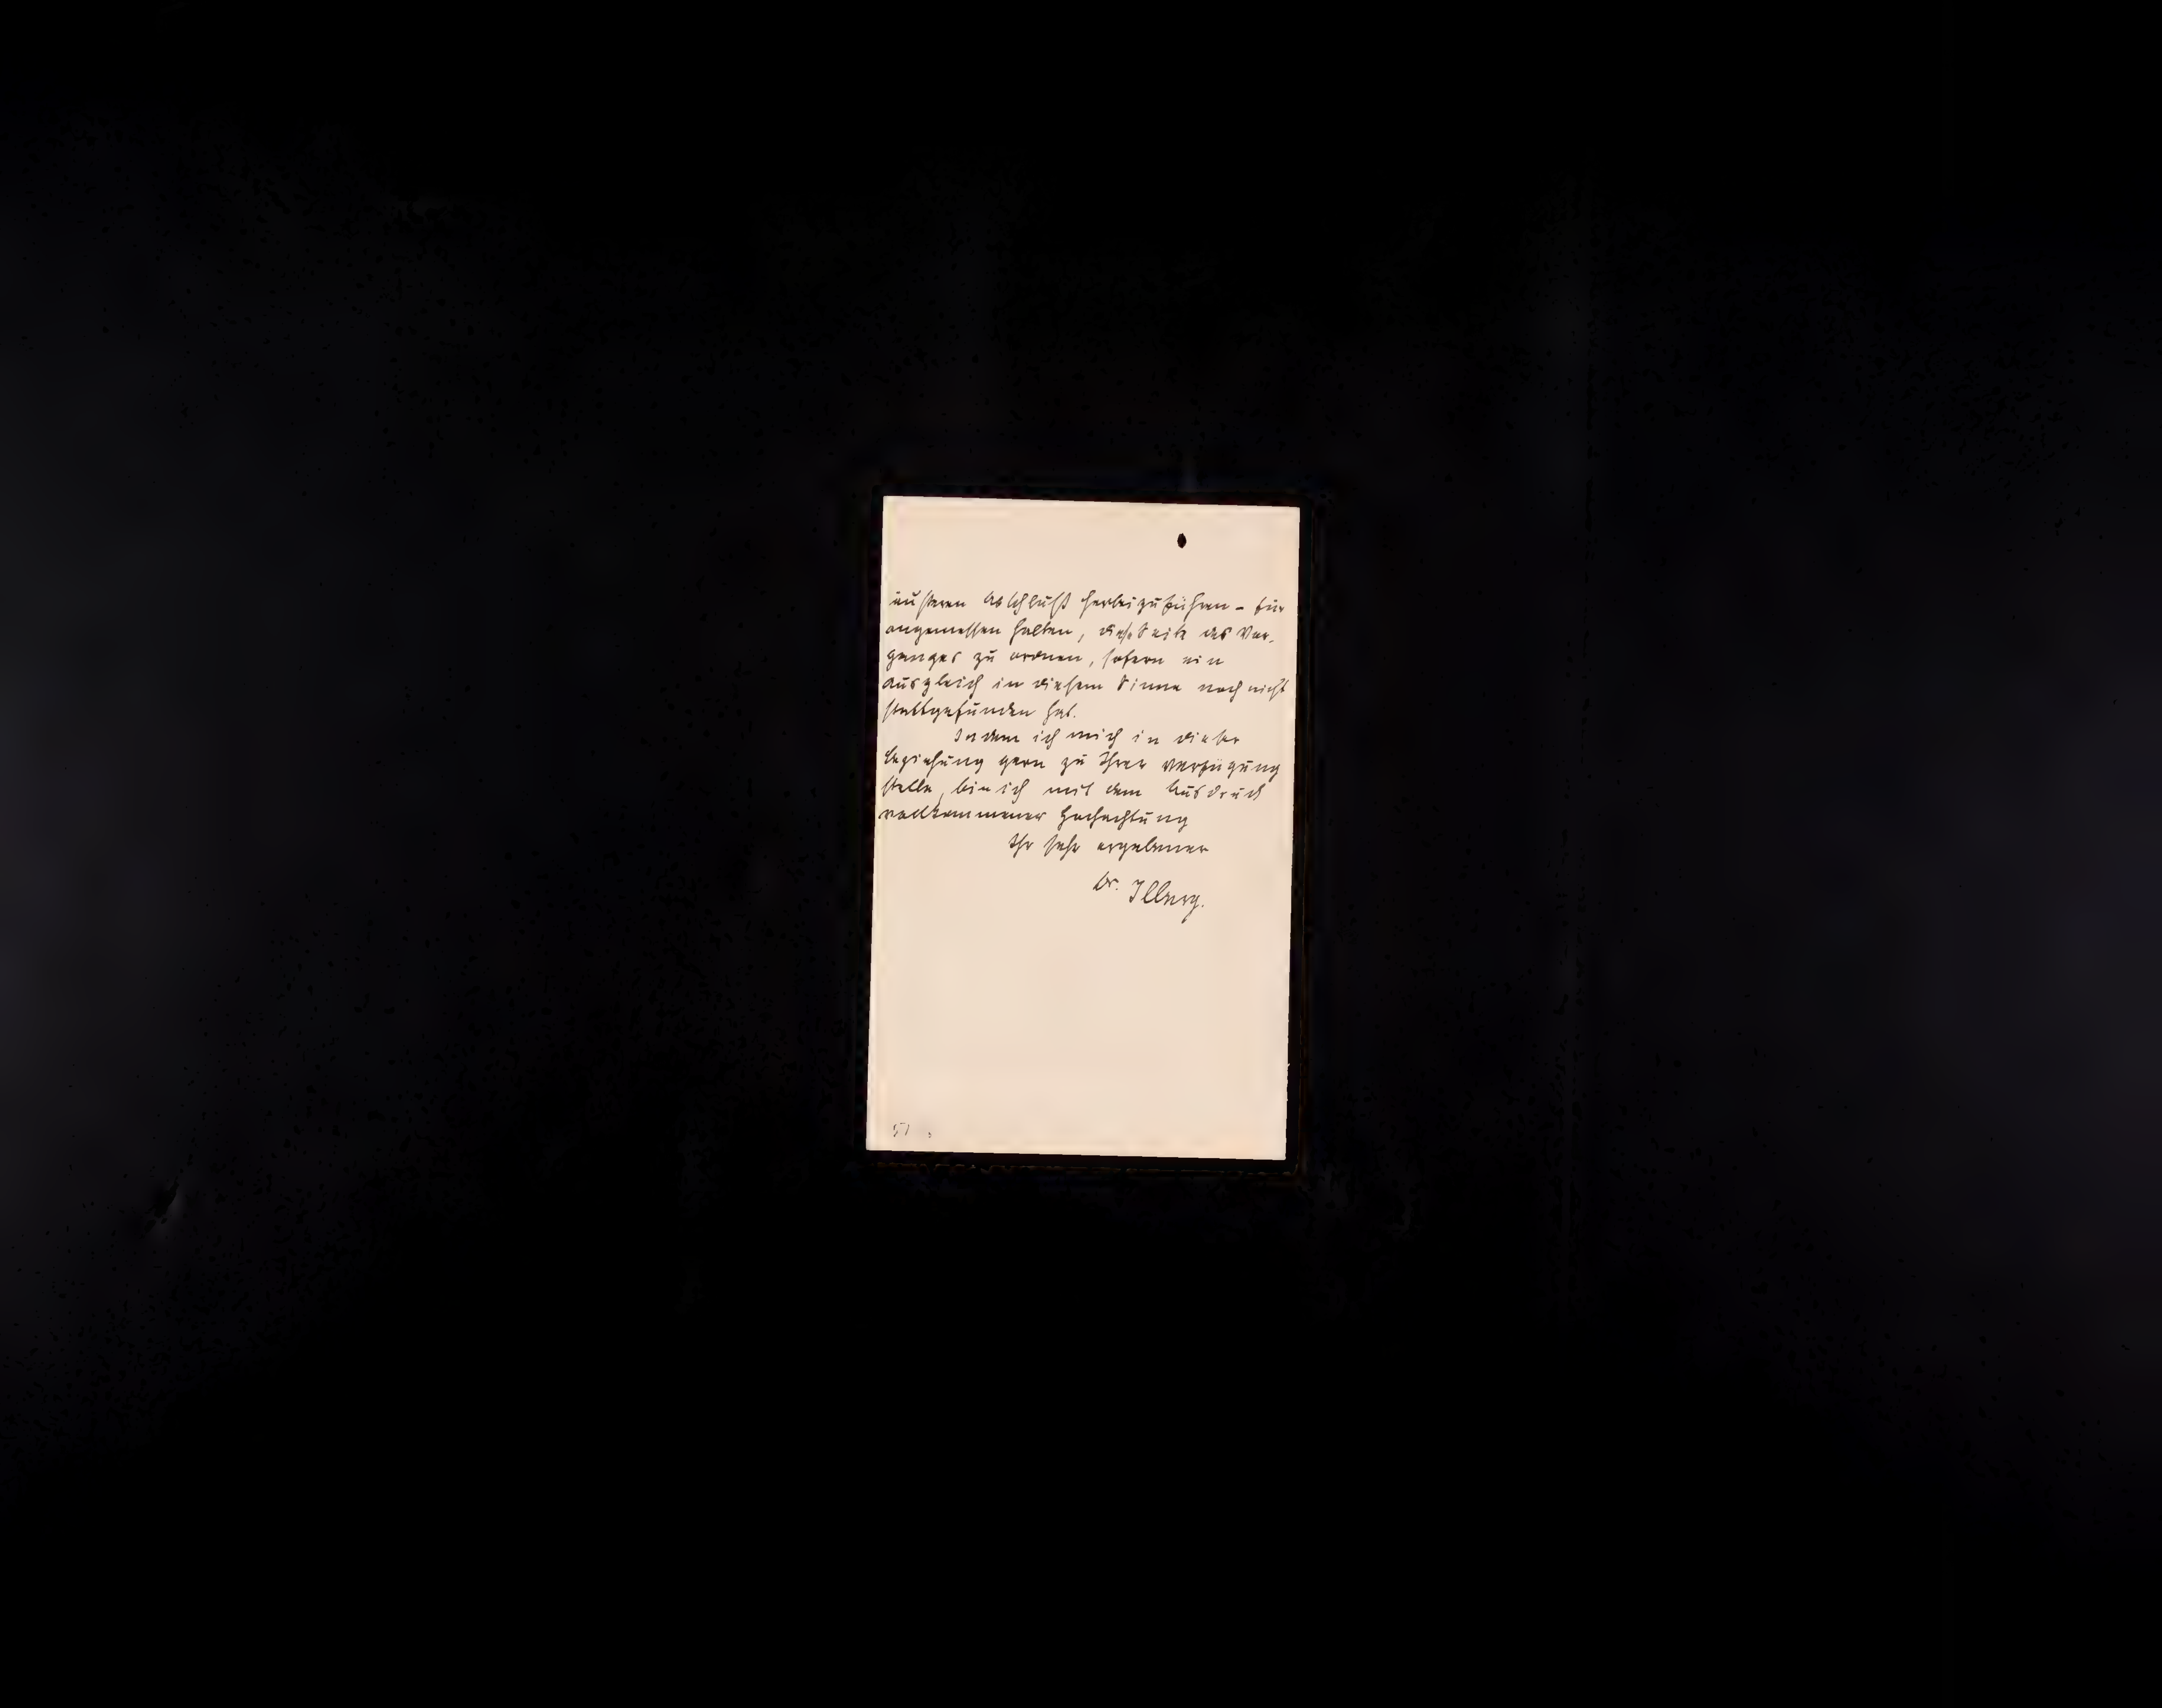 äußeren Abschluß herbeizuführen – für
angemessen halten, diese Seite des Vor-
ganges zu ordnen, sofern ein
Ausgleich in diesem Sinne noch nicht
stattgefunden hat.
Indem ich mich in dieser
Beziehung gern zu Ihrer Verfügung
stelle, bin ich mit dem Ausdruck
vollkommener Hochachtung
Ihr sehr ergebener
Dr. Ilberg.
51